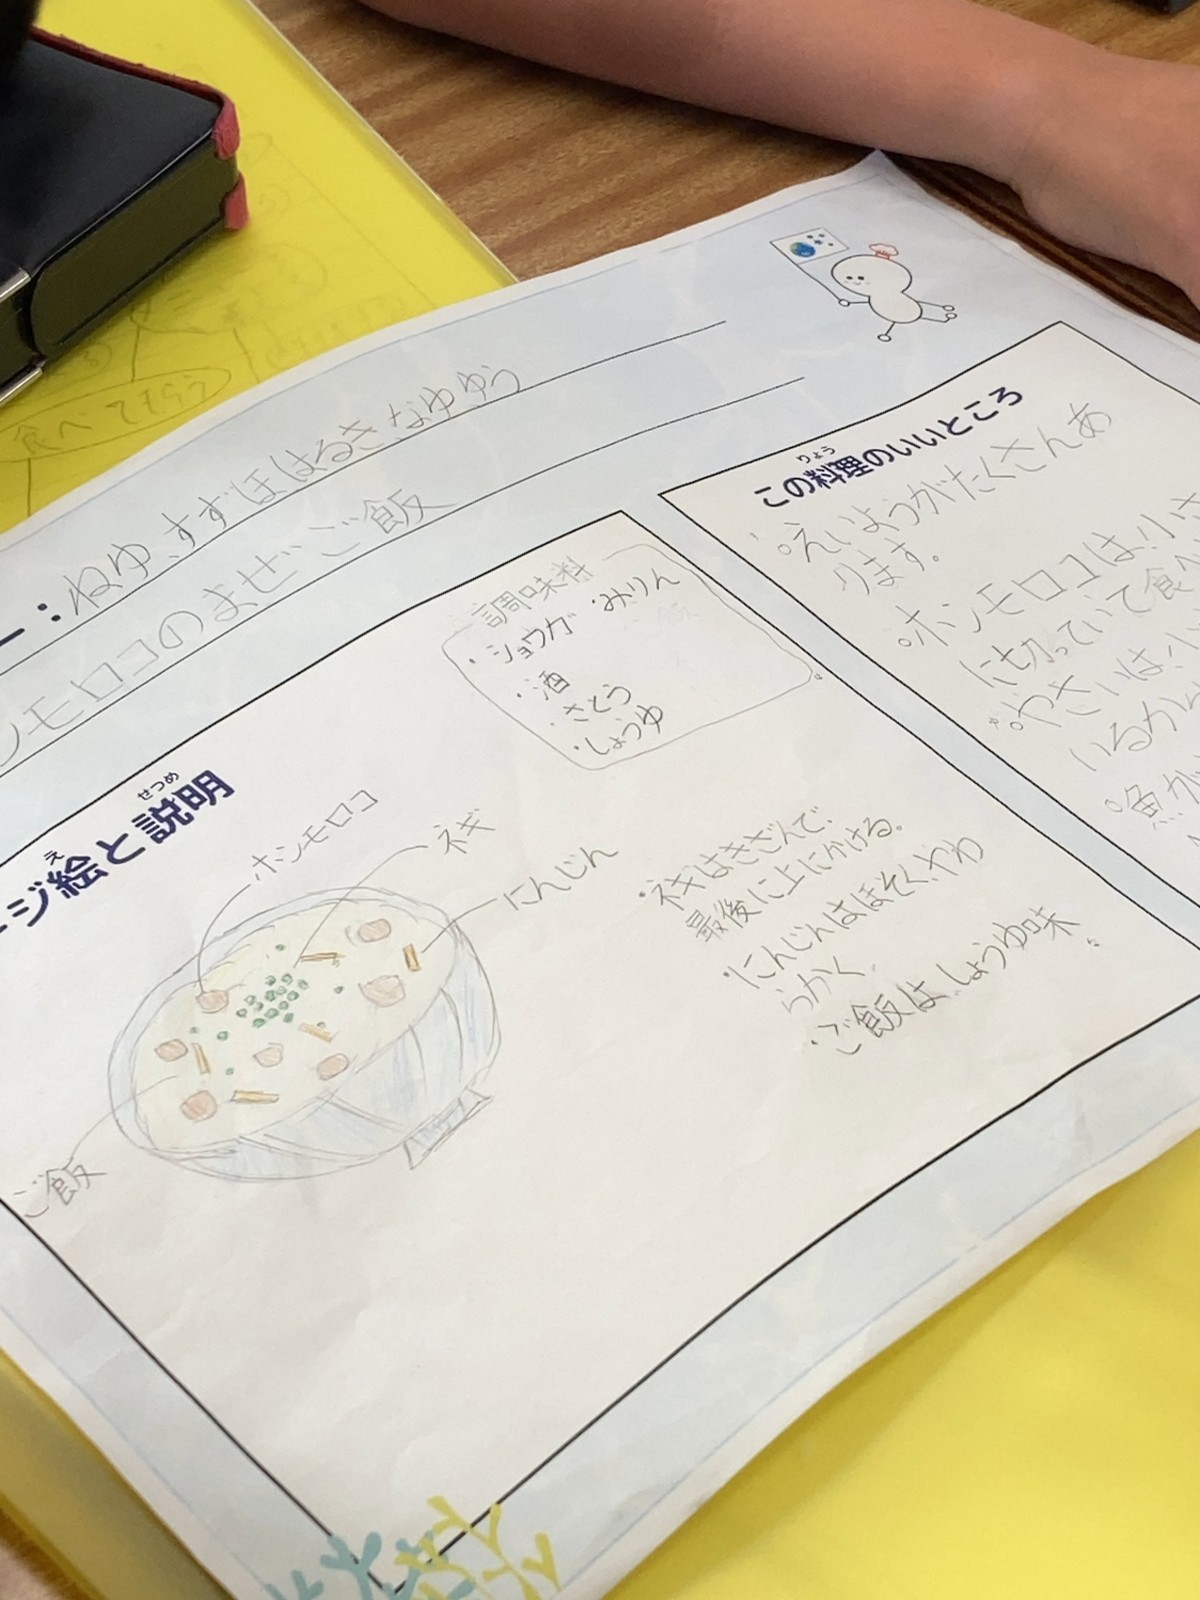 食べてもらう
ー：ねゆ、すずほはるきなゆゆう
ンモロコのまぜご飯
ージ絵と説明
せつめ
え
調味料
・ショウガ ・みりん
・酒
・さとう
・しょうゆ
ホンモロコ
ネギ
にんじん
ご飯
・ネギはきざんで、
最後に上にかける。
・にんじんはほそく、やわ
らかく
・ご飯は しょうゆ味
この料理のいいところ
りょう
。えいようがたくさんあ
ります。
。ホンモロコは小さ
に切っていて食べ
。やさいは小
いるか
。魚が